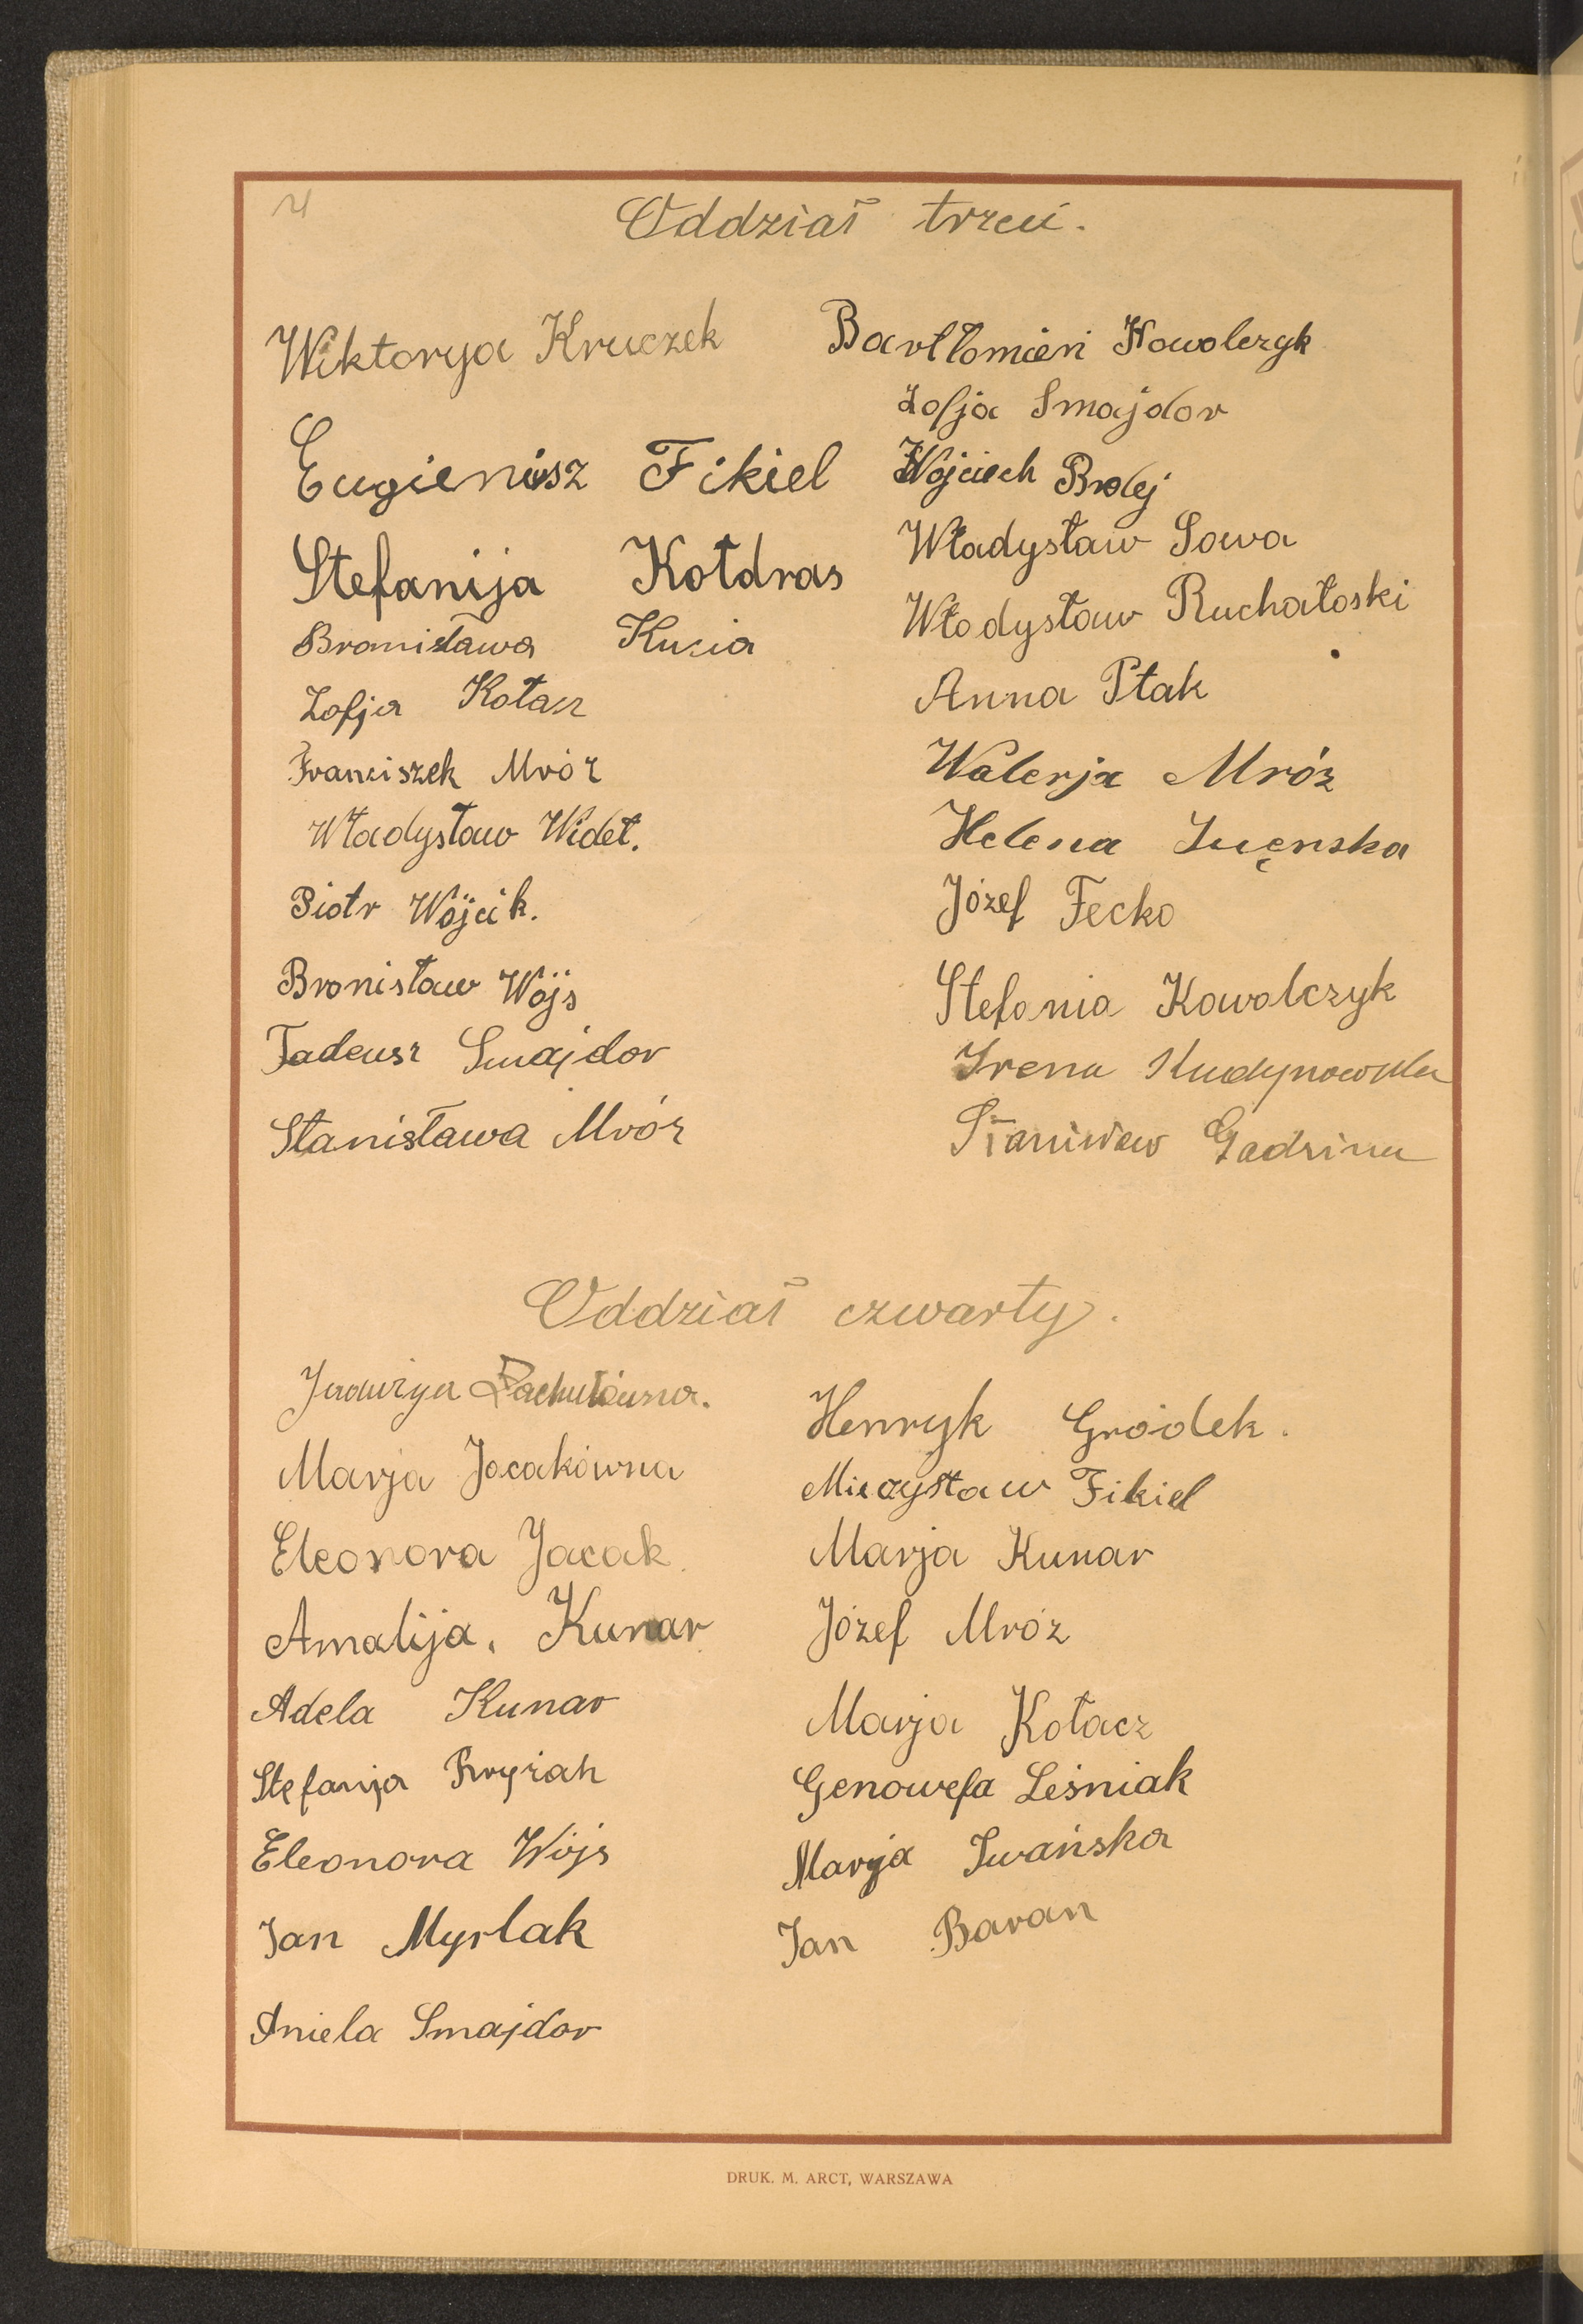 Oddział trzeci.
Wiktorya Kruczek
Eugieniusz Fikiel
Stefanija Kołdras
Bronisława Kucia
Zofja Kołacz
Franciszek Mróz
Władysław Wideł.
Piotr Wójcik.
Bronisław Wójs
Tadeusz Smajdor
Stanisława Mróz
Bartłomiej Kowolczyk
Zofja Smajdor
Wojciech
Władysław Sowa
Włodysław Ruchałoski
Anna Ptak
Walerja Mróz
Helena
Józef Fecko
Stefania Kowolczyk
Irena
Stanisław
Oddział czwarty.
Jadwiga
Marja Jacakówna
Eleonora Jacak
Amalija, Kunar
Adela Kunar
Stefanja
Eleonora Wójs
Jan Myrlak
Aniela Smajdor
Henryk Gródek.
Mieczysław Fikiel
Marja Kunar
Józef Mróz
Marja Kołacz
Genowefa Leśniak
Marja Iwańska
Jan Baran
DRUK. M. ARCT, WARSZAWA